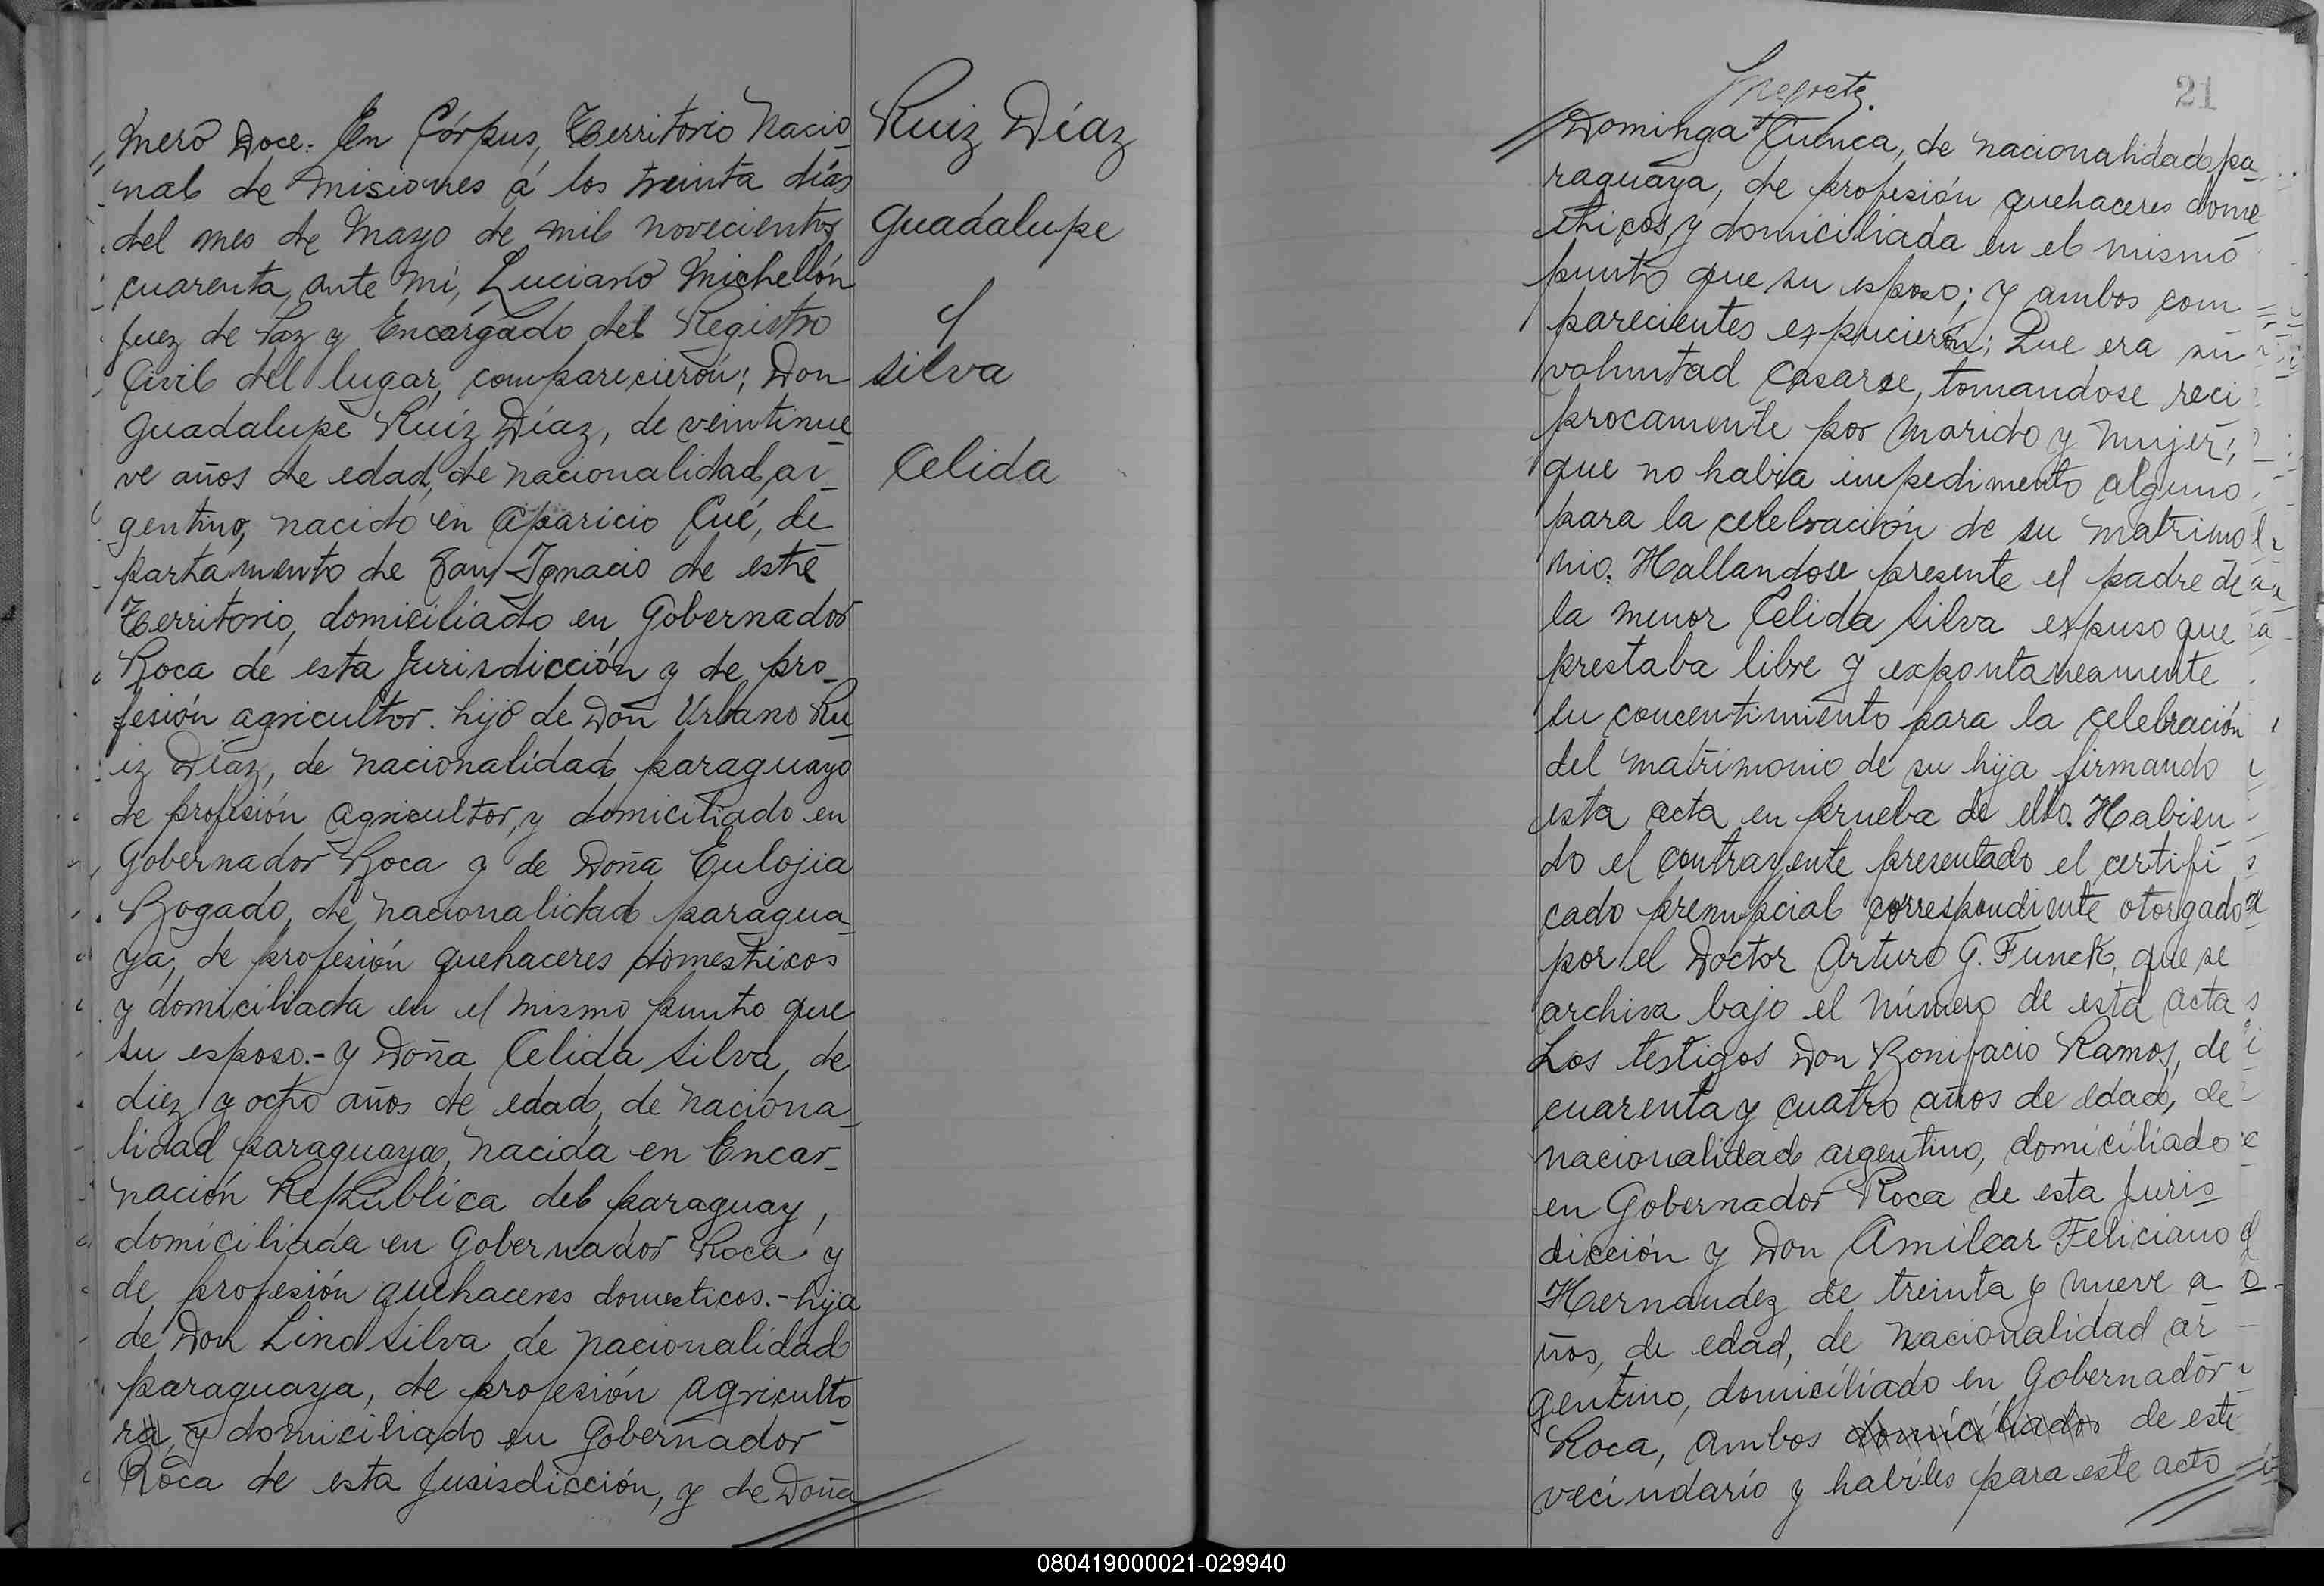 mero Doce: En Córpus, Territorio Nacio
nal de Misiones á los treinta días
del mes de Mayo de mil novecientos
cuarenta, ante mí, Luciano Michellón
Juez de Paz y Encargado del Registro
Civil del lugar, comparecierón; Don
Guadalupe Ruiz Díaz, de veintinue
ve años de edad, de nacionalidad ar
gentino, nacido en Aparicio Cué, de
partamento de San Ignacio de este
Territorio, domiciliado en Gobernador
Roca de esta Jurisdicción y de pro
fesión agricultor. hijo de Don Urbano Ru
iz Díaz, de nacionalidad paraguayo
de profesión agricultor, y domiciliado en
Gobernador Roca y de Doña Eulojia
Bogado, de nacionalidad paragua
ya, de profesión quehaceres domesticos
y domiciliada en el mismo punto que
su esposo.- y Doña Celida Silva, de
diez y ocho años de edad, de naciona
lidad paraguaya, nacida en Encar
nación República del paraguay,
domiciliada en Gobernador Roca y
de profesión quehaceres domesticos.- hija
de Don Lino Silva de nacionalidad
paraguaya, de profesión agriculto
ra, y domiciliado en Gobernador
Roca de esta Jurisdicción, y de Doña
Ruiz Díaz
Guadalupe
y
Silva
Celida
21
Dominga Cuenca, de nacionalidad pa
raguaya, de profesión quehaceres dome
sticos, y domiciliada en el mismo
punto que su esposo; y ambos com
parecientes expucierón; Que era su
voluntad casarse, tomandose reci
procamente por Marido y Mujer;
que no habia impedimento alguno
para la celebración de su matrimo
nio. Hallandose presente el padre de
la menor Celida Silva expuso que
prestaba libre y expontaneamente
su concentimiento para la celebración
del matrimonio de su hija firmando
esta acta en prueba de ello. Habien
do el contrayente presentado el certifi
cado prenupcial correspondiente otorgado
por el Doctor Arturo G. Funck, que se
archiva bajo el número de esta acta
Los testigos Don Bonifacio Ramos, de
cuarenta y cuatro años de edad, de
nacionalidad argentino, domiciliado
en Gobernador Roca de esta Juris
dicción y Don Amilcar Feliciano
Hernandez de treinta y nueve a
ños, de edad, de nacionalidad ar
gentino, domiciliado en Gobernador
Roca, ambos domiciliados de este
vecindario y habiles para este acto
080419000021-029940